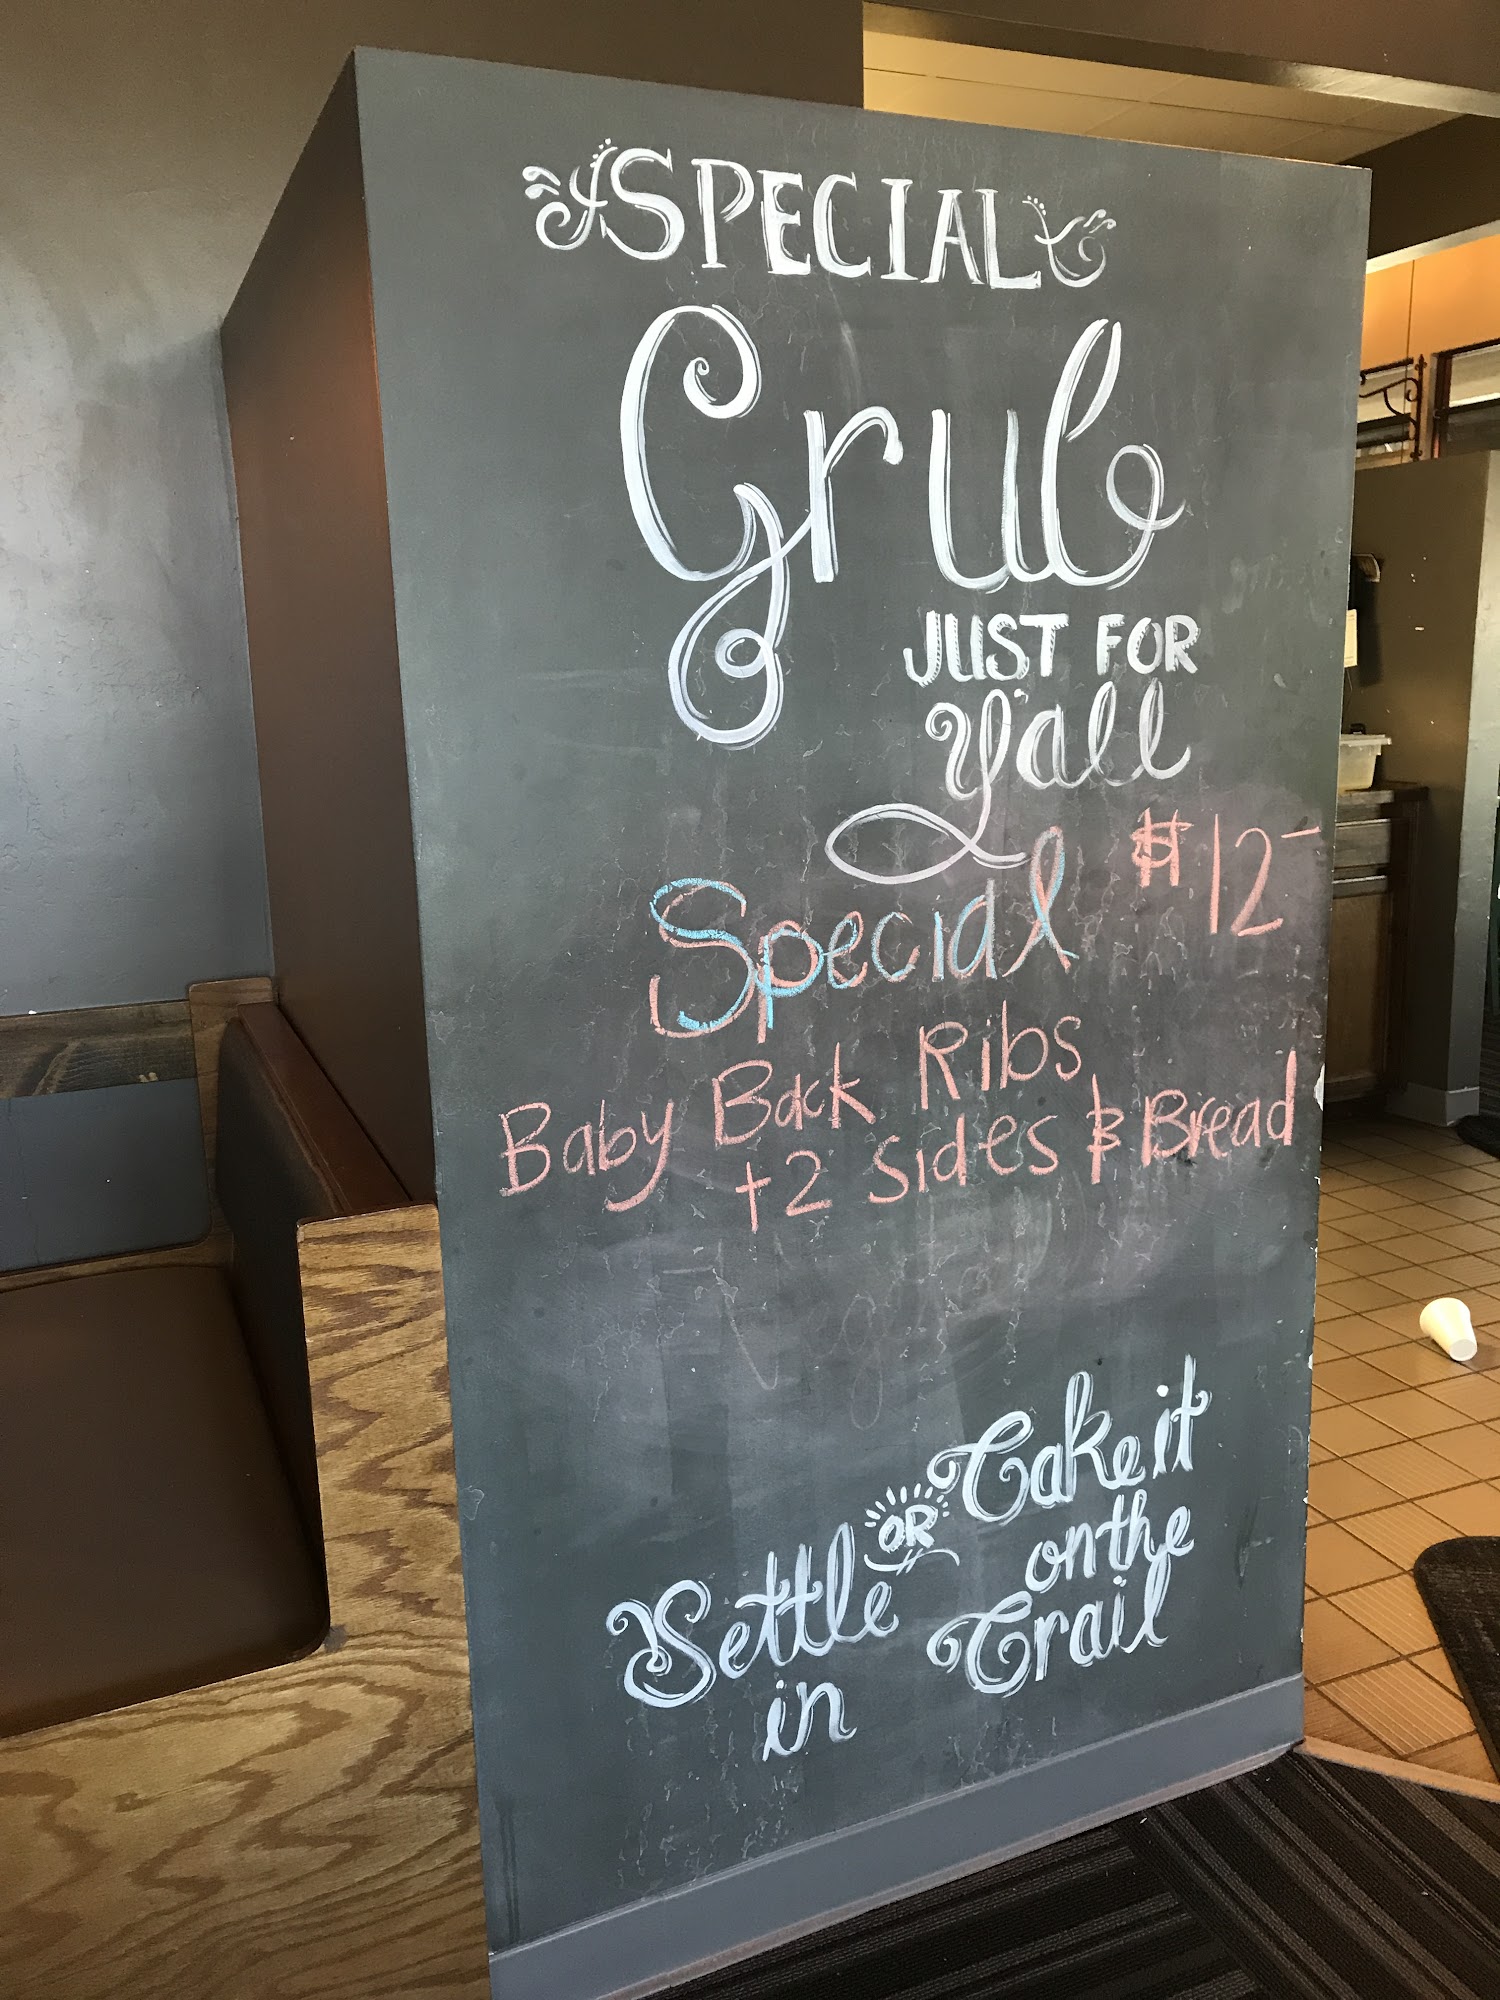 SPECIAL
Grub
JUST FOR
Y'all
Special $12-
Baby Back Ribs
+2 sides & Bread
Settle in
OR
Take it
on the
Trail